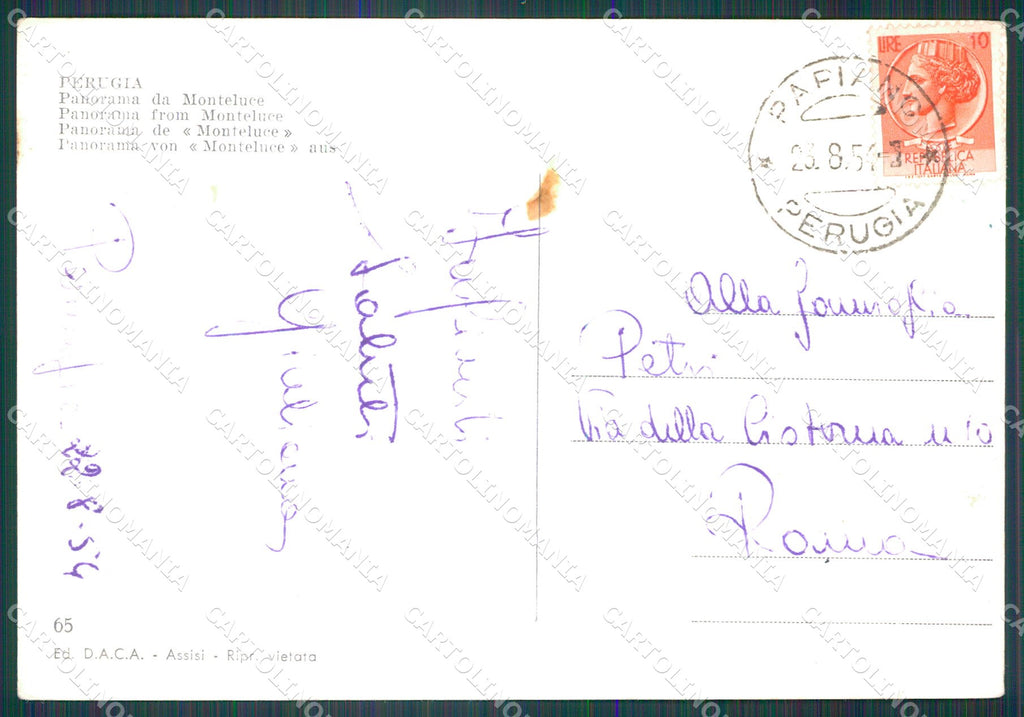 PERUGIA
Panorama da Monteluce
Panorama from Monteluce
Panorama de « Monteluce »
Panorama von « Monteluce » aus
LIRE 10
REPUBBLICA
ITALIANA
PAPIANO
23.8.54
PERUGIA
Affettuosi
saluti
Giuliana
Perugia 22-8-54
Alla Famiglia
Petri
Via della Cisterna n 10
Roma
65
Ed. D.A.C.A. - Assisi - Ripr. vietata
CARTOLINOMANIA